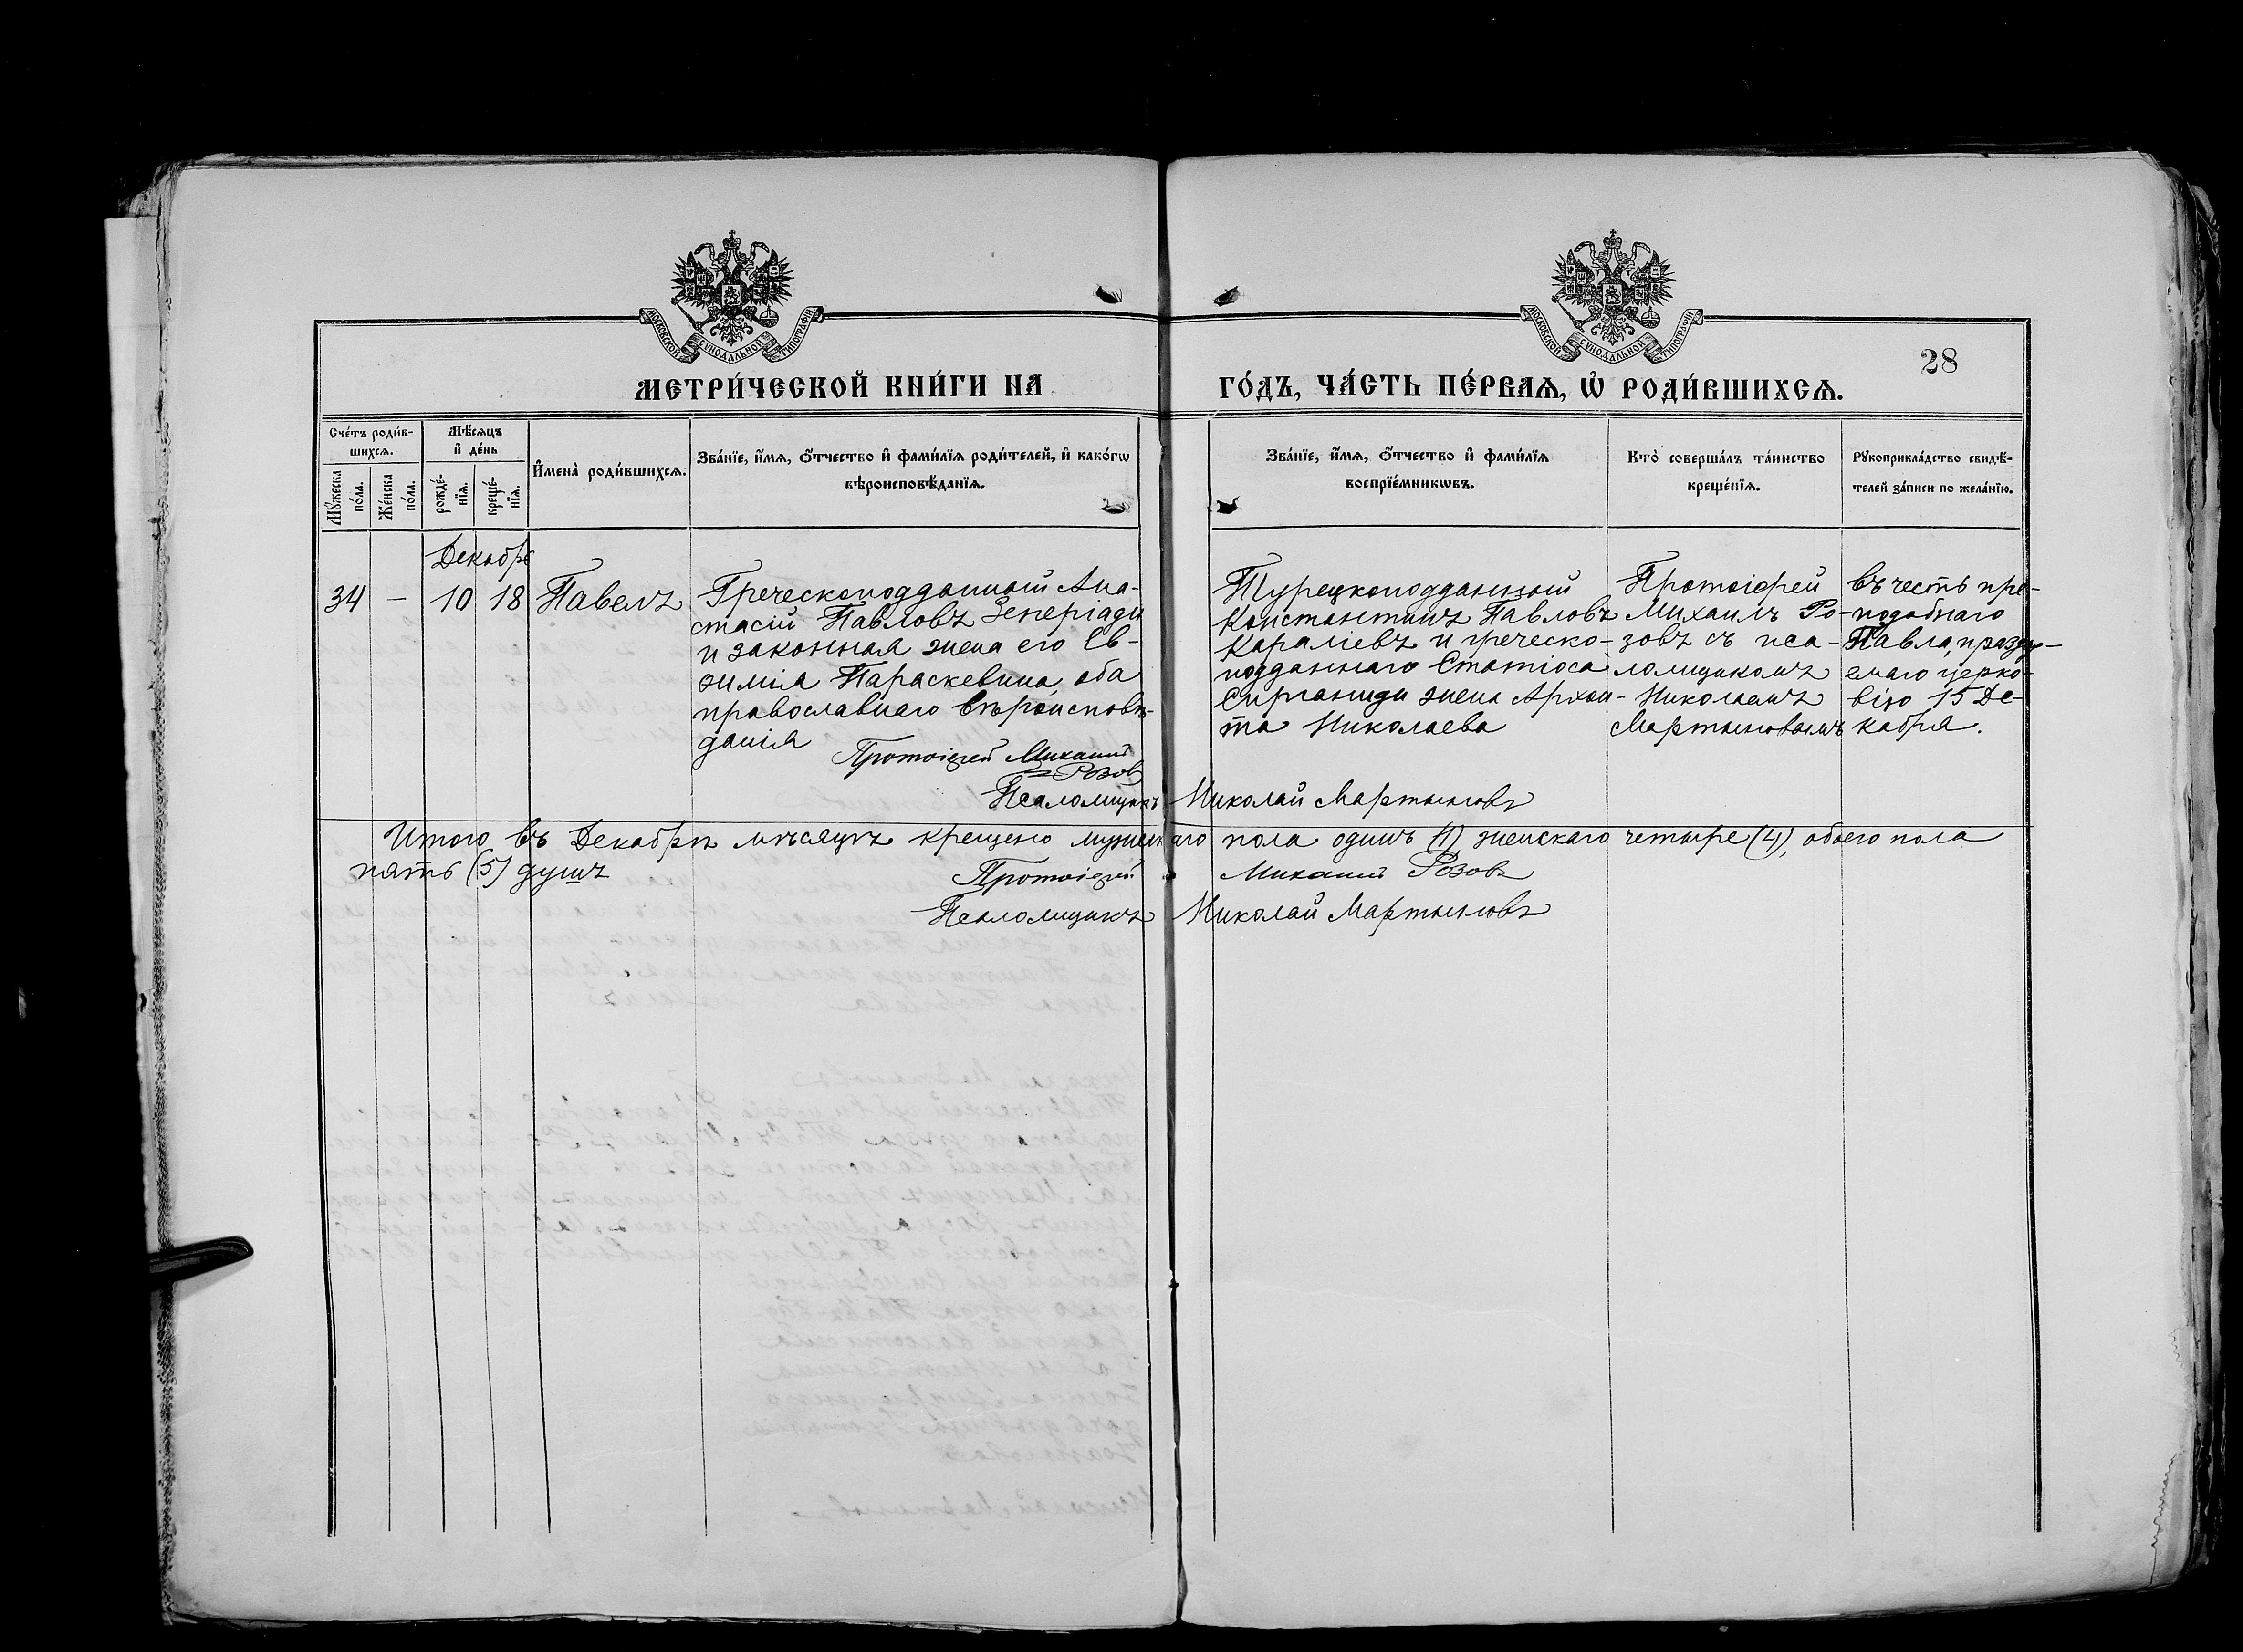 МОСКОВСКОЙ СѴНОДАЛЬНОЙ ТИПОГРАФІИ
МОСКОВСКОЙ СѴНОДАЛЬНОЙ ТИПОГРАФІИ
28
МЕТРИ́ЧЕСКОЙ КНИ́ГИ НА ГО́ДЪ, ЧА́СТЬ ПЕ́РВАѦ, Ѡ҆ РОДИ́ВШИХСѦ.
Сче́тъ роди́в-
шихсѧ.
Мѣ́сѧцъ
и҆ де́нь
Мꙋ́жеска
по́ла.
Же́нска
по́ла.
рожде́-
нїѧ.
креще́-
нїѧ.
И҆мена̀ роди́вшихсѧ.
Зва́нїе, и҆́мѧ, ѻ҆́тчество и҆ фами́лїѧ роди́телей, и҆ како́гѡ
вѣроисповѣ́данїѧ.
Зва́нїе, и҆́мѧ, ѻ҆́тчество и҆ фами́лїѧ
воспрїе́мникѡвъ.
Кто̀ соверша́лъ та́инство
креще́нїѧ.
Рꙋкоприкла́дство свидѣ́-
телей за́писи по жела́нїю.
Декабрь
34 — 10 18 Павелъ
Греческоподданный Ана-
стасій Павловъ Зепергади
и законная жена его Ев-
фимія Параскевина, оба
православнаго вѣроисповѣ-
данія
Протоіерей Михаилъ
Розовъ
Псаломщикъ Николай Мартыновъ
Турецкоподданный
Константинъ Павловъ
Караліевъ и греческо-
подданнаго Статіоса
Сиріаниди жена Архон-
та Николаева
Протоіерей
Михаилъ Ро-
зовъ съ пса-
ломщикомъ
Николаемъ
Мартыновымъ
въ честь пре-
подобнаго
Павла, праздну-
емаго церко-
вію 15 Де-
кабря.
Итого въ Декабрѣ мѣсяцѣ крещено мужескаго пола одинъ (1) женскаго четыре (4), обоего пола
пять (5) душъ
Протоіерей Михаилъ Розовъ
Псаломщикъ Николай Мартыновъ